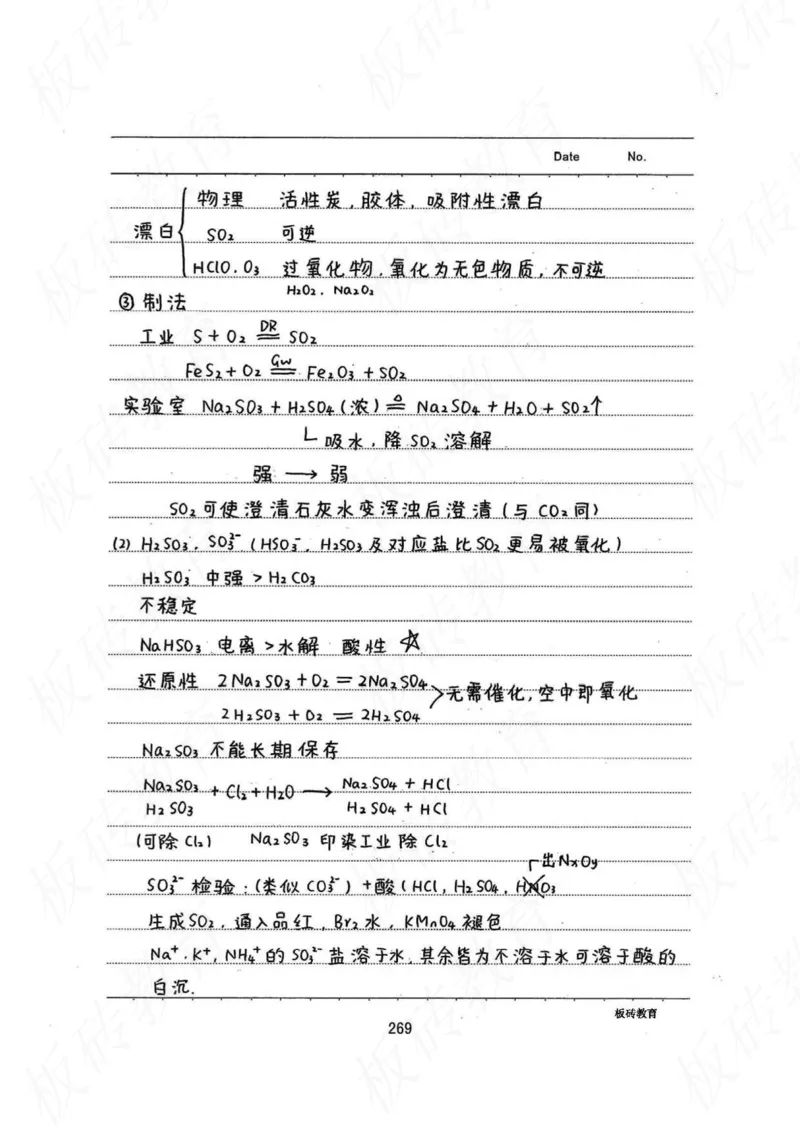 Date No.
物理 活性炭,胶体,吸附性漂白
漂白 SO₂ 可逆
HClO.O₃ 过氧化物,氧化为无色物质,不可逆
H₂O₂.Na₂O₂
③制法
工业 S+O₂ =DR= SO₂
FeS₂+O₂ =Gw= Fe₂O₃+SO₂
实验室 Na₂SO₃+H₂SO₄(浓) =△= Na₂SO₄+H₂O+SO₂↑
└吸水,降SO₂溶解
强 → 弱
SO₂可使澄清石灰水变浑浊后澄清(与CO₂同)
(2) H₂SO₃.SO₃²⁻(HSO₃⁻.H₂SO₃及对应盐比SO₂更易被氧化)
H₂SO₃ 中强>H₂CO₃
不稳定
NaHSO₃ 电离>水解 酸性 ☆
还原性 2Na₂SO₃+O₂=2Na₂SO₄
2H₂SO₃+O₂=2H₂SO₄ >无需催化,空中即氧化
Na₂SO₃不能长期保存
Na₂SO₃ +Cl₂+H₂O → Na₂SO₄+HCl
H₂SO₃ H₂SO₄+HCl
(可除Cl₂) Na₂SO₃印染工业除Cl₂
┌出NxOy
SO₃²⁻检验:(类似CO₃²⁻)+酸(HCl,H₂SO₄,HNO₃
生成SO₂,通入品红,Br₂水,KMnO₄褪色
Na⁺.K⁺,NH₄⁺的SO₃²⁻盐溶于水,其余皆为不溶于水可溶于酸的
白沉.
板砖教育
269